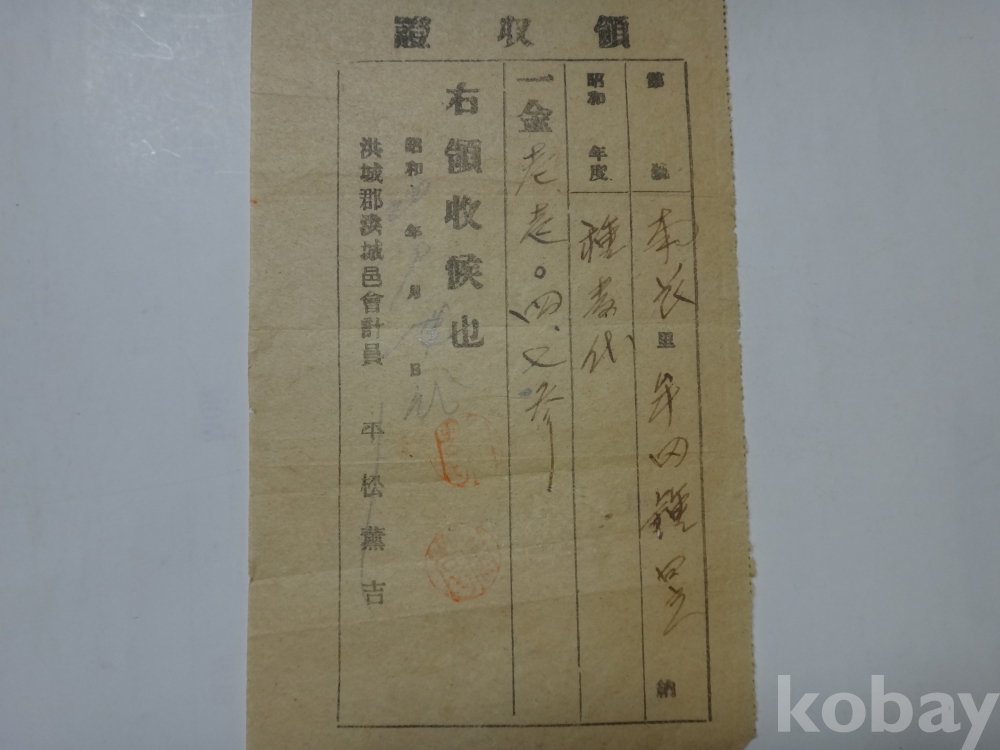 領收證
第 號 南長里 牟田鍾昱 納
昭和 年度 種叺代
一金 壱壱。四七參
右領收候也
昭和 年 月 日
洪城郡洪城邑會計員 平松薰吉
kobay